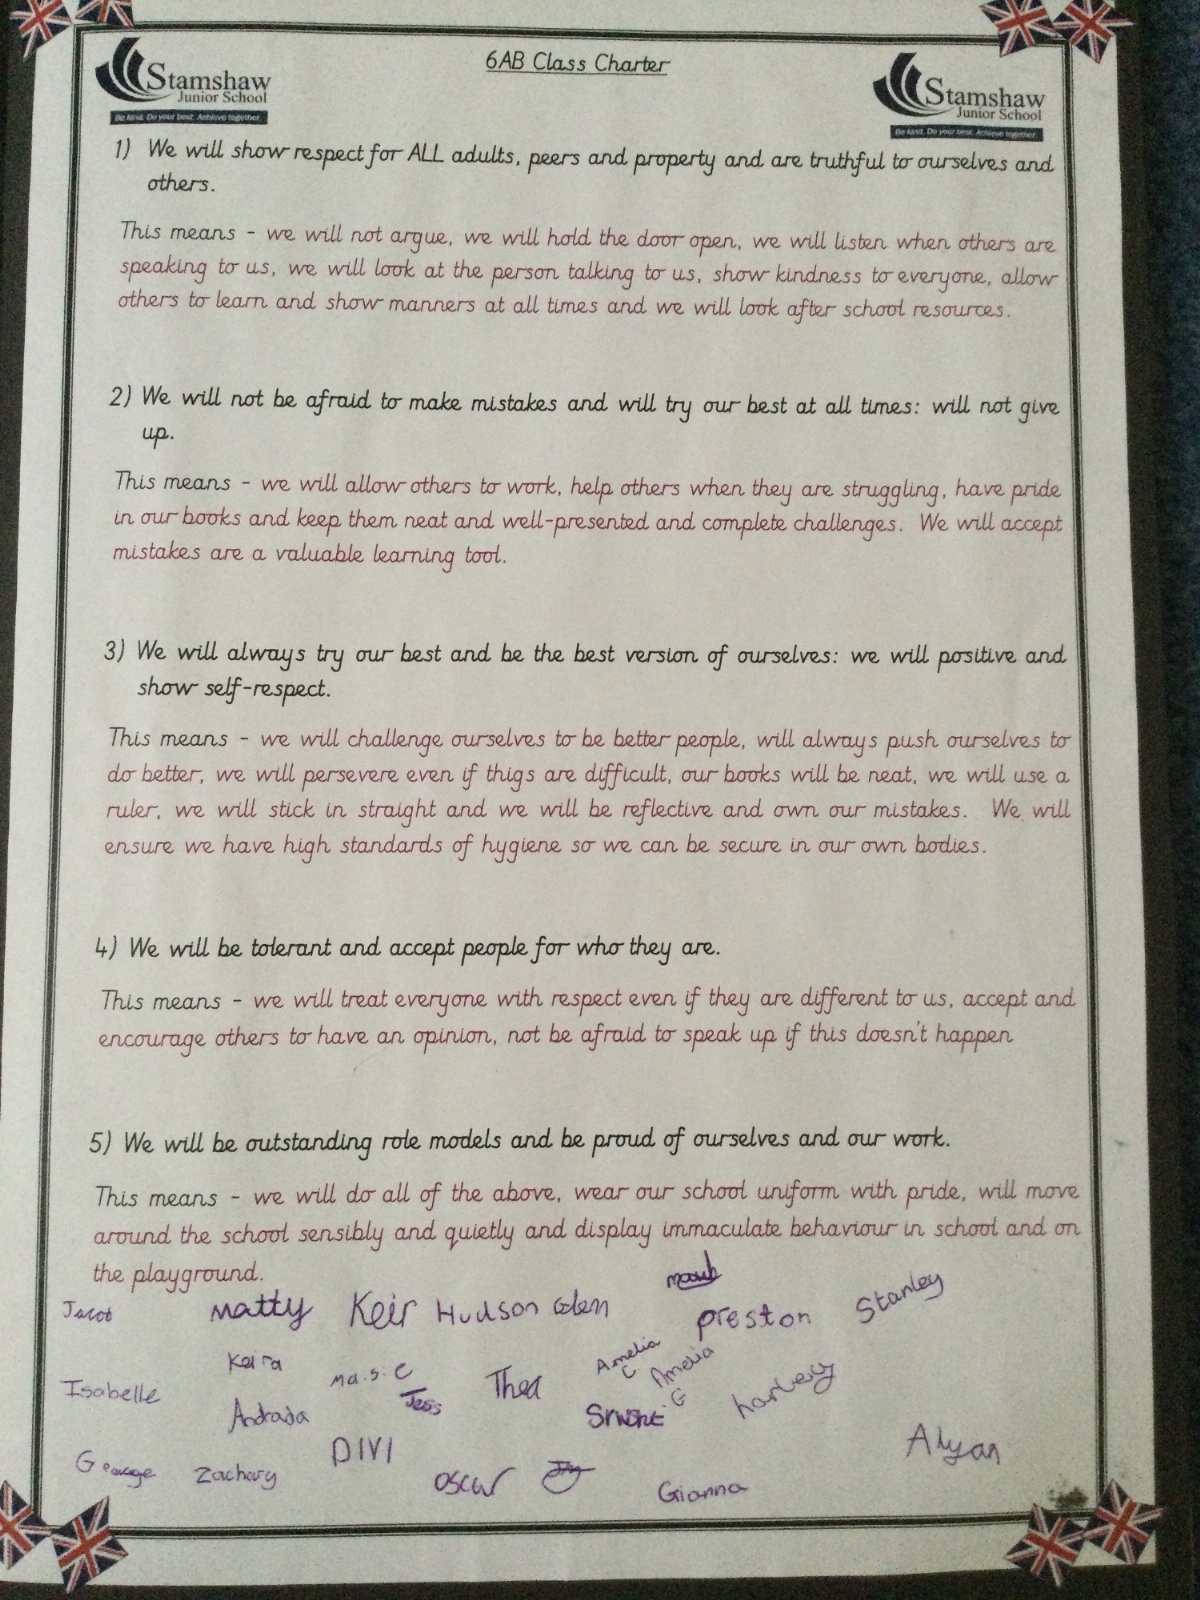 6AB Class Charter
Stamshaw
Junior School
Be kind. Do your best. Achieve together.
Stamshaw
Junior School
Be kind. Do your best. Achieve together.
1) We will show respect for ALL adults, peers and property and are truthful to ourselves and
others.
This means - we will not argue, we will hold the door open, we will listen when others are
speaking to us, we will look at the person talking to us, show kindness to everyone, allow
others to learn and show manners at all times and we will look after school resources.
2) We will not be afraid to make mistakes and will try our best at all times: will not give
up.
This means - we will allow others to work, help others when they are struggling, have pride
in our books and keep them neat and well-presented and complete challenges. We will accept
mistakes are a valuable learning tool.
3) We will always try our best and be the best version of ourselves: we will positive and
show self-respect.
This means - we will challenge ourselves to be better people, will always push ourselves to
do better, we will persevere even if thigs are difficult, our books will be neat, we will use a
ruler, we will stick in straight and we will be reflective and own our mistakes. We will
ensure we have high standards of hygiene so we can be secure in our own bodies.
4) We will be tolerant and accept people for who they are.
This means - we will treat everyone with respect even if they are different to us, accept and
encourage others to have an opinion, not be afraid to speak up if this doesn't happen
5) We will be outstanding role models and be proud of ourselves and our work.
This means - we will do all of the above, wear our school uniform with pride, will move
around the school sensibly and quietly and display immaculate behaviour in school and on
the playground.
Jacob Matty Keir Hudson preston Stanley
Keira Amelia C Amelia G
Isabelle Jess Thea
Andrada
George Zachary DIVI Oscar Gianna Alyan